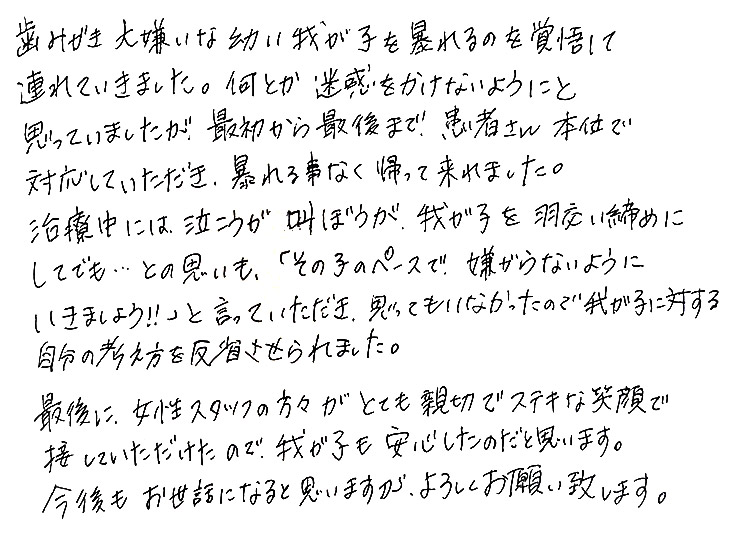 歯みがき大嫌いな幼い我が子を暴れるのを覚悟して
連れていきました。何とか迷惑をかけないようにと
思っていましたが、最初から最後まで、患者さん本位で
対応していただき、暴れる事なく帰って来れました。
治療中には、泣こうが叫ぼうが、我が子を羽交い締めに
してでも…との思いも、「その子のペースで、嫌がらないように
いきましょう!!」と言っていただき、思ってもいなかったので我が子に対する
自分の考え方を反省させられました。
最後に、女性スタッフの方々がとても親切でステキな笑顔で
接していただけたので、我が子も安心したのだと思います。
今後もお世話になると思いますが、よろしくお願い致します。